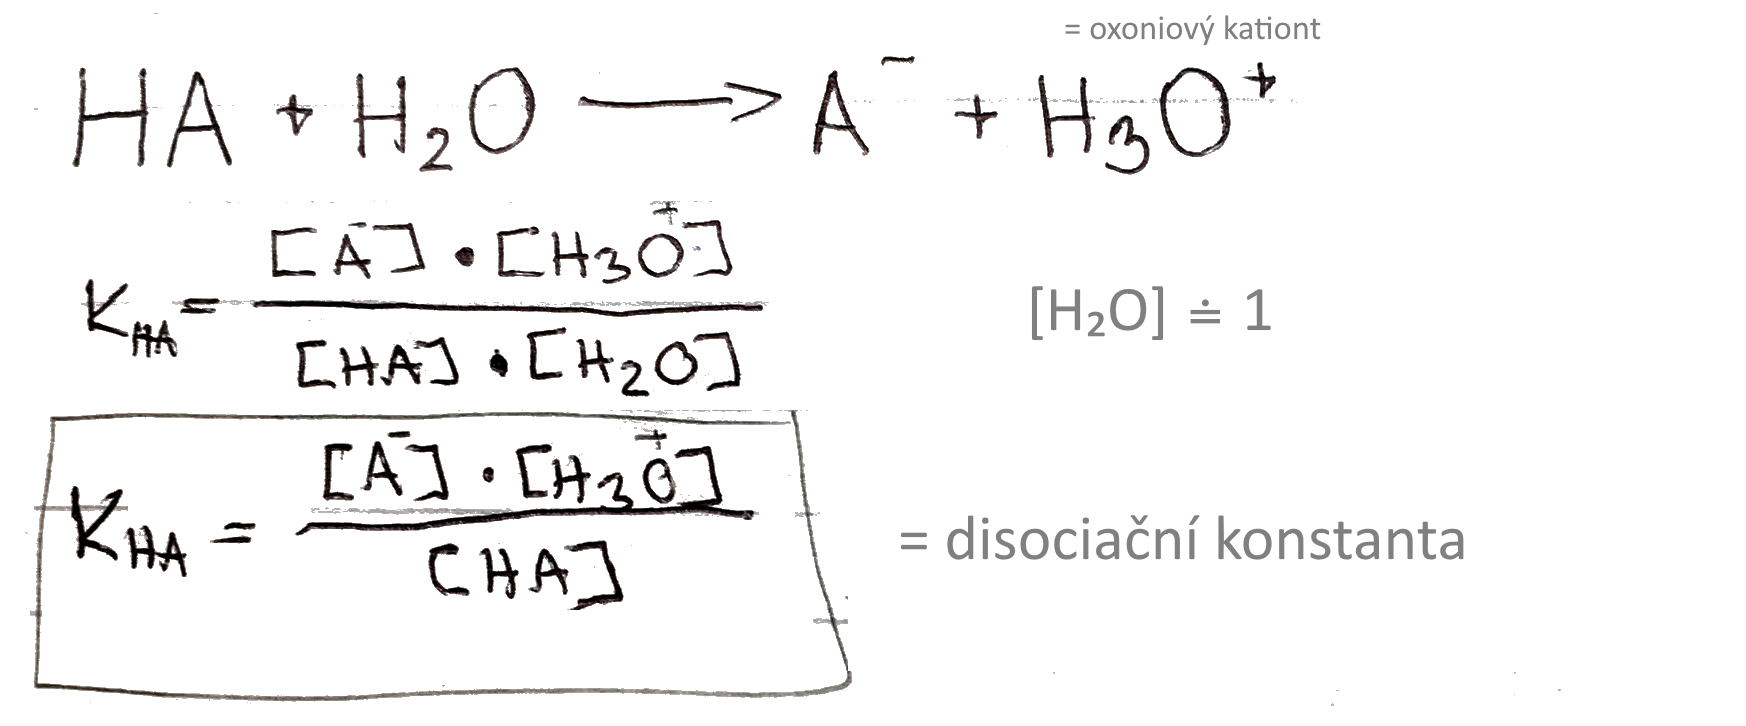 = oxoniový kationt
HA + H₂O ⟶ A⁻ + H₃O⁺
K_HA = [A⁻] • [H₃O⁺] / [HA] • [H₂O]
[H₂O] ≐ 1
K_HA = [A⁻] • [H₃O⁺] / [HA]
= disociační konstanta